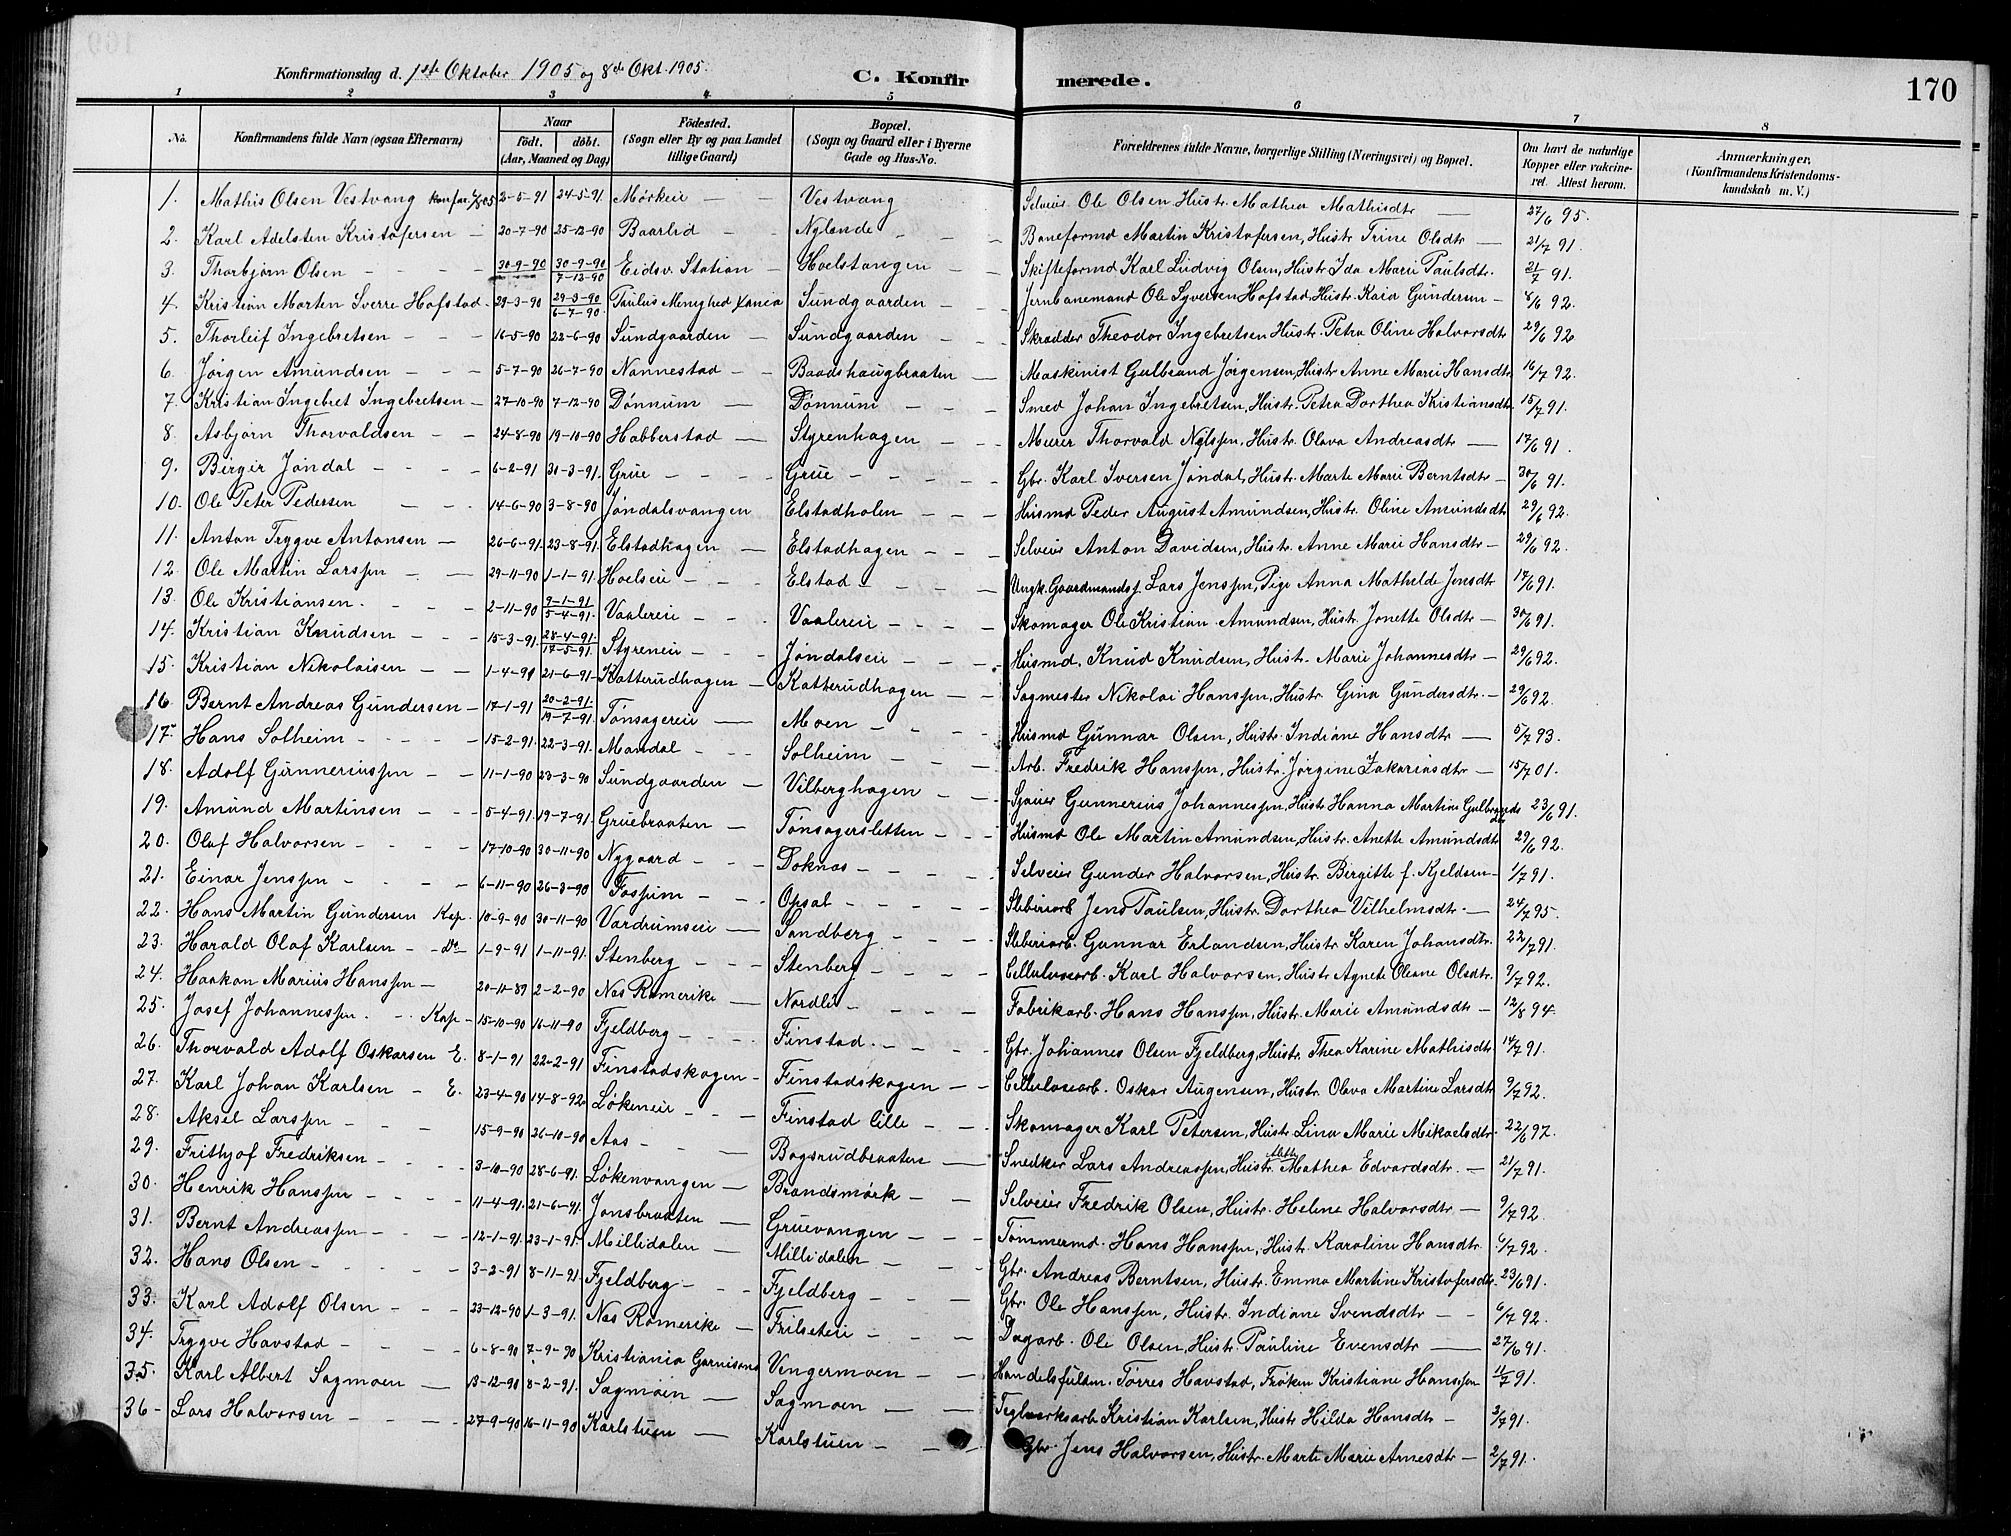 Konfirmationsdag d. 1ste Oktober 1905 og 8de Okt. 1905. C. Konfir merede. 170
1 2 3 4 5 6 7 8
No. Konfirmandens fulde Navn (ogsaa Efternavn) Naar født. døbt. (Aar, Maaned og Dag) Fødested. (Sogn eller By og paa Landet tillige Gaard) Bopæl. (Sogn og Gaard eller i Byerne Gade og Hus-No. Forældrenes fulde Navne, borgerlige Stilling (Næringsvei) og Bopæl. Om havt de naturlige Kopper eller vakcineret. Attest herom. Anmærkninger. (Konfirmandens Kristendomskundskab m. V.)
1. Mathis Olsen Vestvang 2-5-91 24-5-91. Mørkeie Vestvang Selveier Ole Olsen, Hustr. Mathea Mathisdtr 27/6 95.
2. Karl Adelsten Kristofersen 20-7-90 25-12-90 Baarlid Nylende Baneformd Martin Kristofersen, Hustr Trine Olsdtr 21/7 91.
3. Thorbjørn Olsen 30-9-90 30-9-90 7-12-90 Eidsv. Station Hoelstangen Skifteformd Karl Ludvig Olsen, Hustr Ida Marie Paulsdtr. 21/7 91.
4. Kristian Morten Sverre Hofstad 29-3-90 29-3-90 6-7-90. Paulus Menighed Xania Sundgaarden Jernbanemand Ole Syversen Hofstad, Hustr. Kaia Gundersen 8/6 92.
5. Thorleif Ingebretsen 16-5-90 22-6-90 Sundgaarden Sundgaarden Skrædder Theodor Ingebretsen Hustr. Petra Oline Halvorsdtr 29/6 92
6. Jørgen Amundsen 5-7-90 26-7-90 Nannestad Baadshaugbraaten Maskinist Gulbrand Jørgensen, Hustr Anne Marie Hansdtr 16/7 92.
7. Kristian Ingebret Ingebretsen 27-10-90 7-12-90 Dønnum Dønnum Smed Johan Ingebretsen, Hustr. Petra Dorthea Kristiansdtr 15/7 91.
8. Asbjørn Thorvaldsen 24-8-90 19-10-90 Habberstad Styrenhagen Murer Thorvald Nilssen, Hustr. Olava Andreasdtr 17/6 91.
9. Birger Jøndal 6-2-91 30-3-91. Grue Grue Gbr. Karl Iversen Jøndal, Hustr. Marte Marie Berntsdtr 30/6 91.
10. Ole Peter Pedersen 14-6-90 3-8-90 Jøndalsvangen Elstadholen Husmd Peder August Amundsen, Hustr. Oline Amundsdtr 29/6 92.
11. Anton Trygve Antonsen 26-6-91. 23-8-91. Elstadhagen Elstadhagen Selveier Anton Davidsen, Hustr. Anne Marie Hansdtr 29/6 92.
12. Ole Martin Larssen 29-11-90 1-1-91. Hoelseie Elstad Ungk. Gaardmands. Lars Jenssen, Pige Anna Mathilde Jensdtr 17/6 91.
13. Ole Kristiansen. 2-11-90 9-1-91 5-4-91. Vaalereie Vaalereie Skomager Ole Kristian Amundsen, Hustr. Jonette Olsdtr 30/6 91.
14. Kristian Knudsen 15-3-91. 28-4-91. 17-5-91. Styreneie Jøndalseie Husmd. Knud Knudsen, Hustr. Marie Johannesdtr 29/6 92.
15. Kristian Nikolaisen 1-4-91 21-6-91 Katterudhagen Katterudhagen Sagmester Nikolai Hanssen, Hustr Gina Gundersdtr. 29/6 92.
16 Bernt Andreas Gundersen 17-1-91 20-2-91. 19-7-91. Tønsagereie Moen Husmd Gunnar Olsen, Hustr. Indiane Hansdtr 5/7 93.
17. Hans Solheim 15-2-91. 22-3-91. Mandal Solheim Arb. Fredrik Hanssen, Hustr. Jørgine Zakariasdtr 15/7 01.
18. Adolf Gunneriussen 11-1-90 23-3-90 Sundgaarden Vilberghagen Gunnerius Johannessen, Hustr Hanna Martine Gulbrandsdtr 23/6 91.
19. Amund Martinsen 5-4-91. 19-7-91. Gruebraaten Tønsagersletten Husmd Ole Martin Amundsen, Hustr. Anette Amundsdtr 29/6 92.
20. Olaf Halvorsen 17-10-90 30-11-90 Nygaard Doknas Selveier Gunder Halvorsen, Hustr. Birgitte f. Kjeldsen 1/7 91.
21. Einar Jenssen 6-11-90 26-3-90 Fossum Opsal Sliberiarb Jens Paulsen, Hustr. Dorthea Vilhelmsdtr. 24/7 95.
22. Hans Martin Gundersen Kap. 10-9-90 30-11-90 Vardrumseie Sandberg Sliberiarb. Gunnar Erlandsen, Hustr Karen Johansdtr. 22/7 91.
23. Harald Olaf Karlsen Do 1-9-91 1-11-91. Stenberg Stenberg Cellulosearb. Karl Halvorsen, Hustr Agnete Oleane Olsdtr. 9/7 92.
24. Haakon Marius Hanssen 20-11-89 2-2-90 Nes Romerike Nordli Fabrikarb. Hans Hanssen, Hustr. Marie Amundsdtr 12/8 94.
25. Josef Johannessen Kap 15-10-90 16-11-90 Fjeldberg Finstad Gbr. Johannes Olsen Fjeldberg, Hustr. Thea Karine Mathisdtr. 14/7 91.
26. Thorvald Adolf Oskarsen E. 8-1-91 22-2-91 Finstadskogen Finstadskogen Cellulosearb. Oskar Augensen, Hustr. Olava Martine Larsdtr 9/7 92.
27. Karl Johan Karlsen E. 23-4-90 14-8-92 Løkeneie Finstad lille Skomager Karl Petersen, Hustr. Lina Marie Mikaelsdtr. 22/6 97.
28. Aksel Larssen 15-9-90 26-10-90 Aas Bogsrudbraaten Snedker Lars Andreassen, Hustr. Mathea Edvardsdtr. 21/7 91.
29. Frithjof Fredriksen 3-10-90 28-6-91. Løkenvangen Brandsmørk Selveier Fredrik Olsen, Hustr. Helene Halvorsdtr 9/7 92.
30. Henrik Hanssen 11-4-91. 21-6-91. Jonsbraaten Gruevangen Tømmermd. Hans Hanssen, Hustr. Karoline Hansdtr 6/7 92.
31. Bernt Andreassen 12-1-91. 23-1-91. Millidalen Millidalen Gbr. Andreas Berntsen, Hustr. Emma Martine Kristofersdtr. 23/6 91.
32. Hans Olsen 3-2-91 8-11-91. Fjeldberg Fjeldberg Gbr. Ole Hanssen, Hustr. Indiane Svendsdtr 6/7 92.
33. Karl Adolf Olsen 23-12-90 1-3-91. Nes Romerike Frilseteie Dagarb. Ole Olsen, Hustr. Pauline Evensdtr 27/6 91.
34. Trygve Havstad 6-8-90 7-9-90 Kristiania Garnisons Vengermoen Handelsfulm. Tørres Havstad, Frøken Kristiane Hanssen 11/7 91.
35. Karl Albert Sagmoen 13-12-90 8-2-91. Sagmoen Sagmoen Teglverksarb Kristian Karlsen, Hustr Hilda Hansdtr 3/7 91.
36 Lars Halvorsen 27-9-90 16-11-90 Karlstuen Karlstuen Gbr. Jens Halvorsen, Hustr. Marte Marie Arnesdtr 2/7 91.